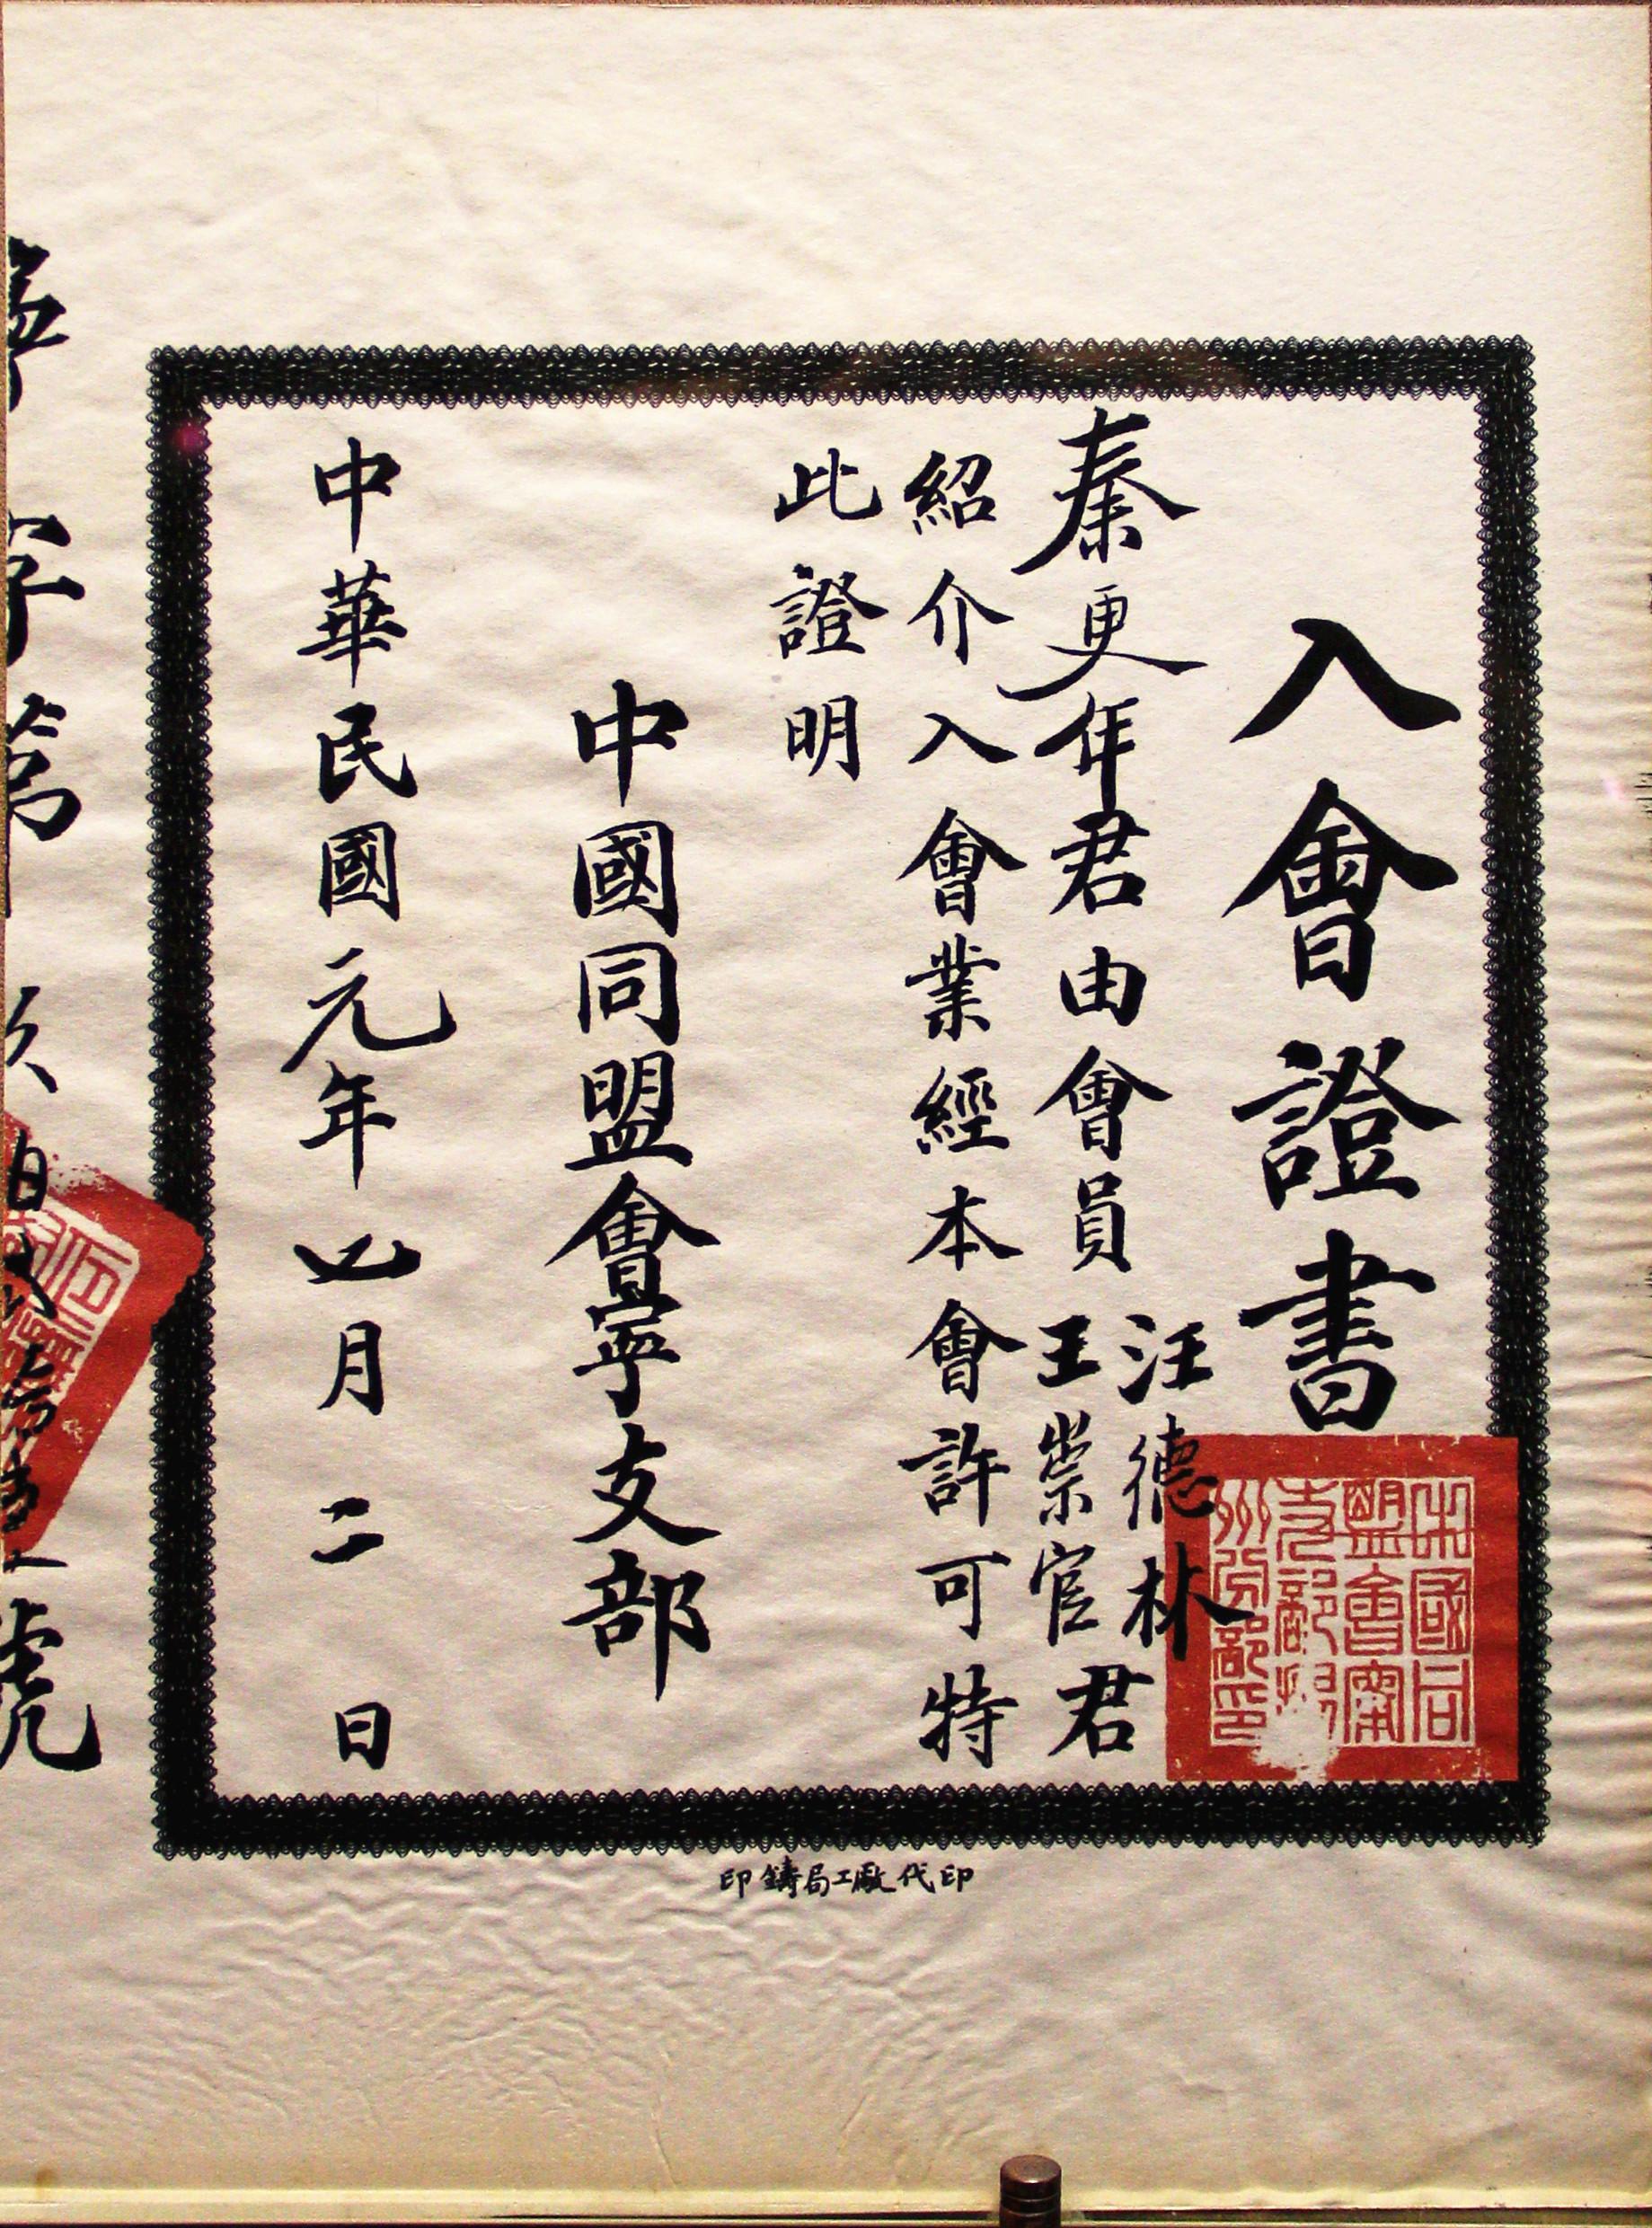 入會證書
秦更年君由會員汪德林王崇官君
紹介入會業經本會許可特
此證明
中國同盟會寧支部
中華民國元年四月二日
字第
號
印鑄局工廠代印